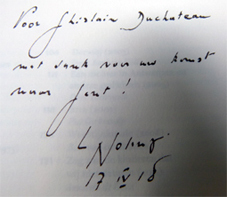 Voor Ghislain Duchateau
met dank voor uw komst
naar Gent!
L Nolens
17 IV 18